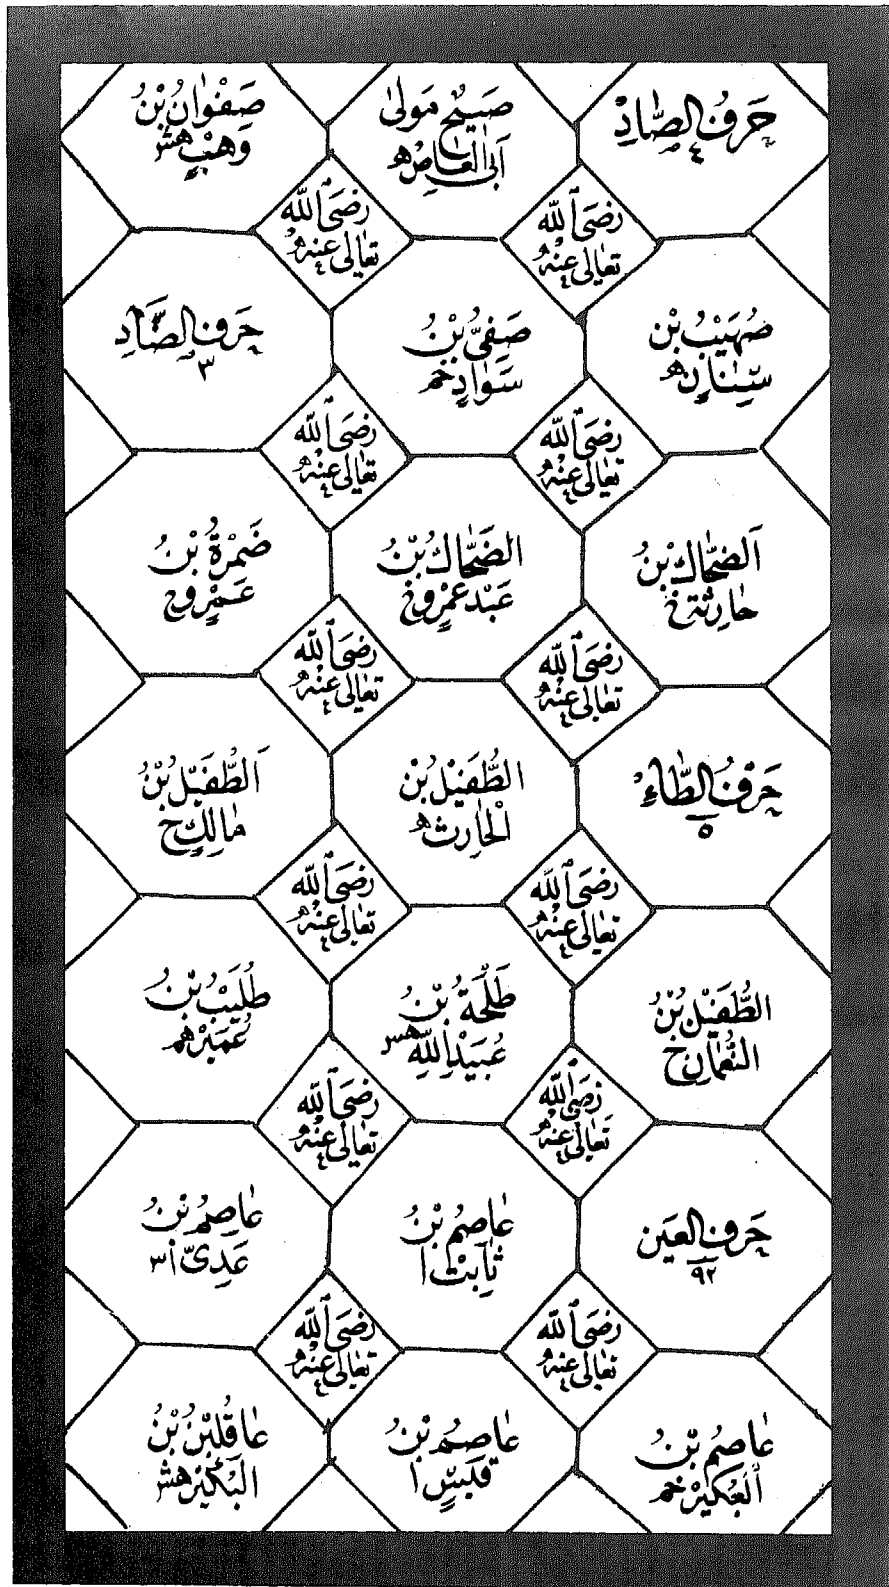 حَرْفُ الصَّادِ
٤
صَبِيْحٌ مَولىٰ
اَبِى الْعَاصْ ه
صَفْوَانُ بْنُ
وَهَبٍْ هش
رَضِىَ اللّٰه
تَعَالىٰ عَنْهُ
رَضِىَ اللّٰه
تَعَالىٰ عَنْهُ
صُهَيْبُ بْن
سِنَانٍ ه
صَفِىُّ بْنُ
سَوَادٍ خم
حَرفُ الضَّادِ
٣
رَضِىَ اللّٰه
تَعَالىٰ عَنْهُ
رَضِىَ اللّٰه
تَعَالىٰ عَنْهُ
اَلضَّحَّاكُ بْنُ
حَارِثَةَ خ
الضَّحَّاكُ بْنُ
عَبْدِ عَمْرٍو خ
ضَمْرَةُ بْنُ
عَمْرٍو خ
رَضِىَ اللّٰه
تَعَالىٰ عَنْهُ
رَضِىَ اللّٰه
تَعَالىٰ عَنْهُ
حَرْفُ الطَّاءِ
٥
الطُّفَيْلُ بْنُ
الْحَارِث ه
اَلطُّفَيْلُ بْنُ
مَالِكٍ خ
رَضِىَ اللّٰه
تَعَالىٰ عَنْهُ
رَضِىَ اللّٰه
تَعَالىٰ عَنْهُ
الطُّفَيْلُ بْنُ
النُّعْمَانِ خ
طَلْحَةُ بْنُ
عُبَيْدِ اللّٰهِ هس
طُلَيْبُ بْنُ
عُمَيْرٍ هم
رَضِىَ اللّٰه
تَعَالىٰ عَنْهُ
رَضِىَ اللّٰه
تَعَالىٰ عَنْهُ
حَرفُ العَين
٩٢
عَاصِمُ بْنُ
ثَابِتْ ا
عَاصِمُ بْنُ
عَدِىّ ا ٣
رَضِىَ اللّٰه
تَعَالىٰ عَنْهُ
رَضِىَ اللّٰه
تَعَالىٰ عَنْهُ
عَاصِمُ بْنُ
الْعُكَيْرْ خم
عَاصِمُ بْنُ
قَيسٍ ا
عَاقِلُ بْنُ
البُكَيْرْ هش